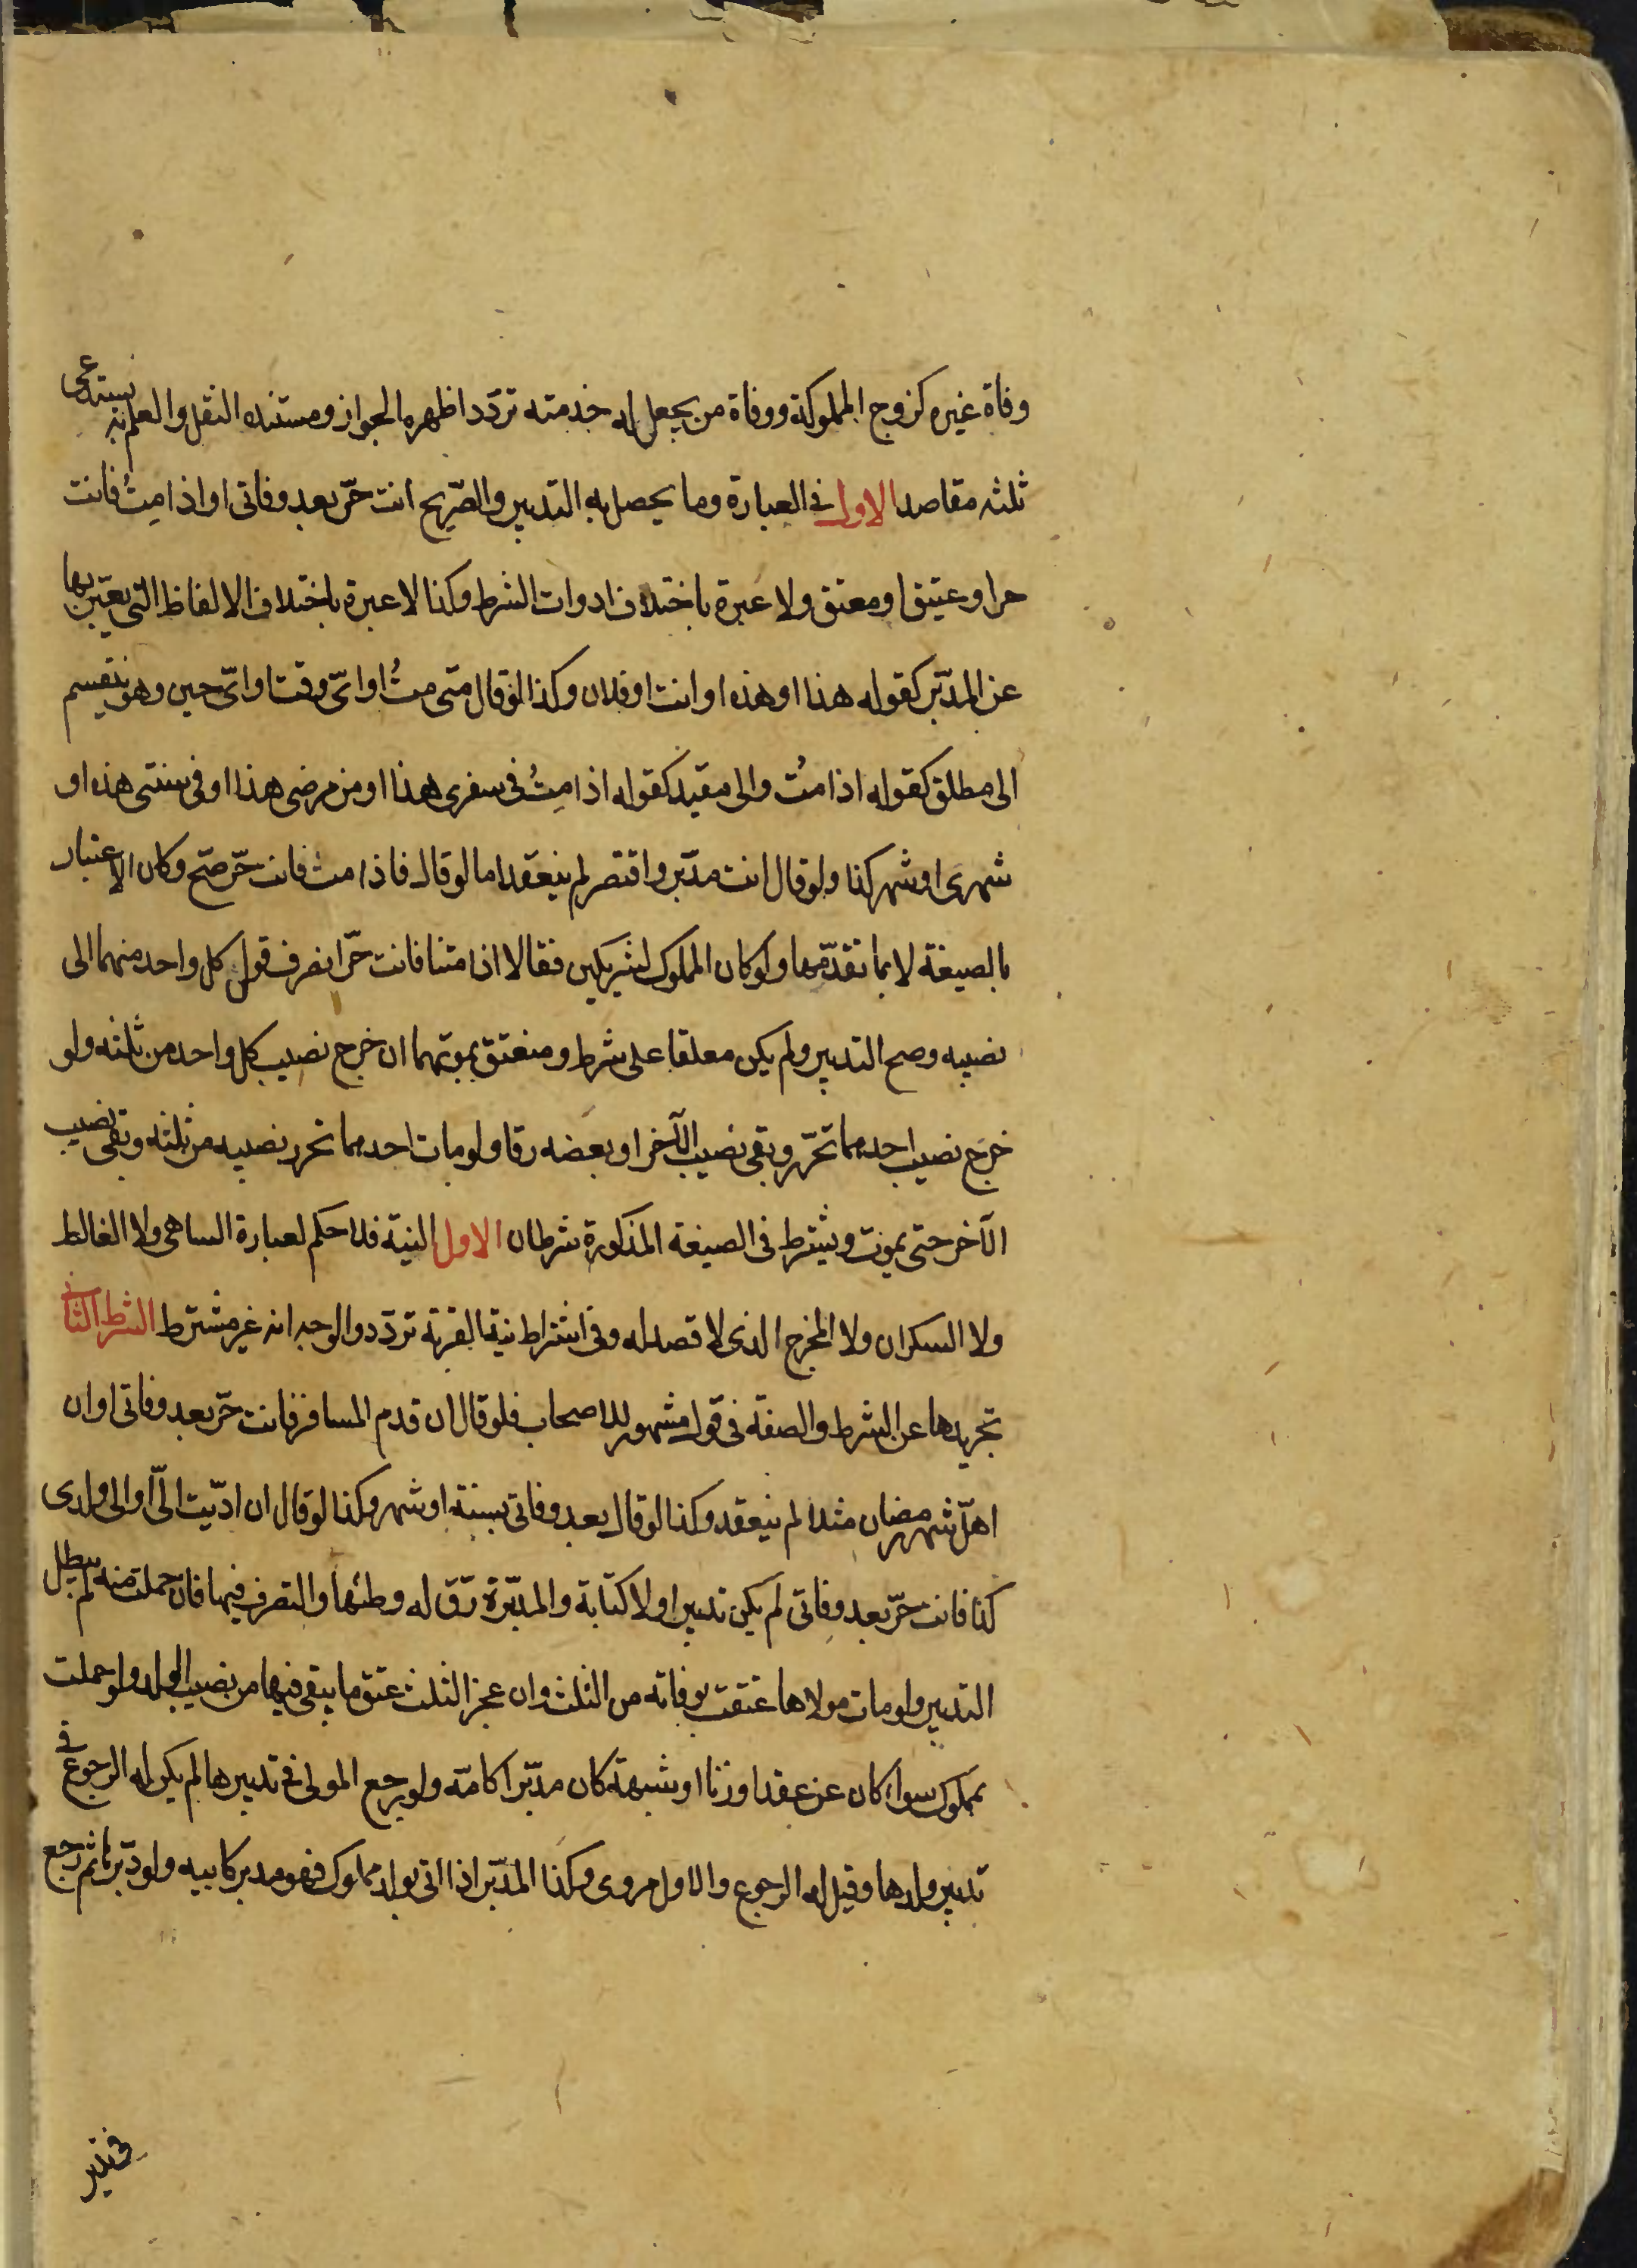 وفاة غيره كزوج المملوكة ووفاة من يجعل له خدمته تردّد اظهره الجواز ومستنده النقل والعلم به يستدعى
ثلثه مقاصد الاول فى العبارة وما يحصل به التدبير والصّريح انت حرّ بعد وفاتى او اذا مِتُ فانت
حر او عتيق او معتق ولا عبرة باختلاف ادوات الشرط وكذا لا عبرة باختلاف الالفاظ التى يعبّر بها
عن المدبّر كقوله هذا او هذه او انت او فلان وكذا لو قال متى متُ او اىّ وقت او اىّ حين وهو ينقسم
الى مطلق كقوله اذا متُ والى مقيد كقوله اذا مِتُ فى سفرى هذا او من مرضى هذا او فى سنتى هذه او
شهرى او شهر كذا ولو قال انت مدبّر واقتصر لم ينعقد اما لو قال فاذا مت فانت حرّ صحّ وكان الاعتبار
بالصيغة لا بما تقدّمها ولو كان المملوك لشريكين فقالا اذا متنا فانت حرّ انصرف قول كل واحد منهما الى
نصيبه وصح التدبير ولم يكن معلقا على شرط ومنعتق بموتهما ان خرج نصيب كل واحد من ثلثه ولو
خرج نصيب احدهما تحرّر وبقى نصيب الآخر او بعضه رقا ولو مات احدهما تحرر نصيبه من ثلثه وبقى نصيب
الآخر حتى يموت ويشترط فى الصيغة المذكورة شرطان الاول النية فلا حكم لعبارة الساهى ولا الغالط
ولا السكران ولا المخرج الذى لا قصد له وفى اشتراط نية القربة تردّد والوجه انه غير مشترط الشرط الثانى
تجريدها عن الشرط والصفة فى قول مشهور للاصحاب فلو قال ان قدم المسافر فانت حرّ بعد وفاتى او ان
اهلّ شهر رمضان مثلا لم ينعقد وكذا لو قال بعد وفاتى بسنة او شهر وكذا لو قال ان ادّيت الىّ او الى ولدى
كذا فانت حرّ بعد وفاتى لم يكن تدبيرا ولا كتابة والمدبّرة رقّ له وطئها والتصرف فيها فان حملت منه لم يبطل
التدبير ولو مات مولاها عتقت بوفاته من الثلث وان عجز الثلث عتق ما يبقى فيها من نصيب الولد ولو حملت
بمملوك سواء كان عن عقد او زنا او شبهة كان مدبّرا كامّه ولو رجع المولى فى تدبيرها لم يكن له الرجوع فى
تدبير ولدها وقيل له الرجوع والاول مروى وكذا المدبّر اذا اتى بولد مملوك فهو مدبر كابيه ولو دبّرها ثم رجع